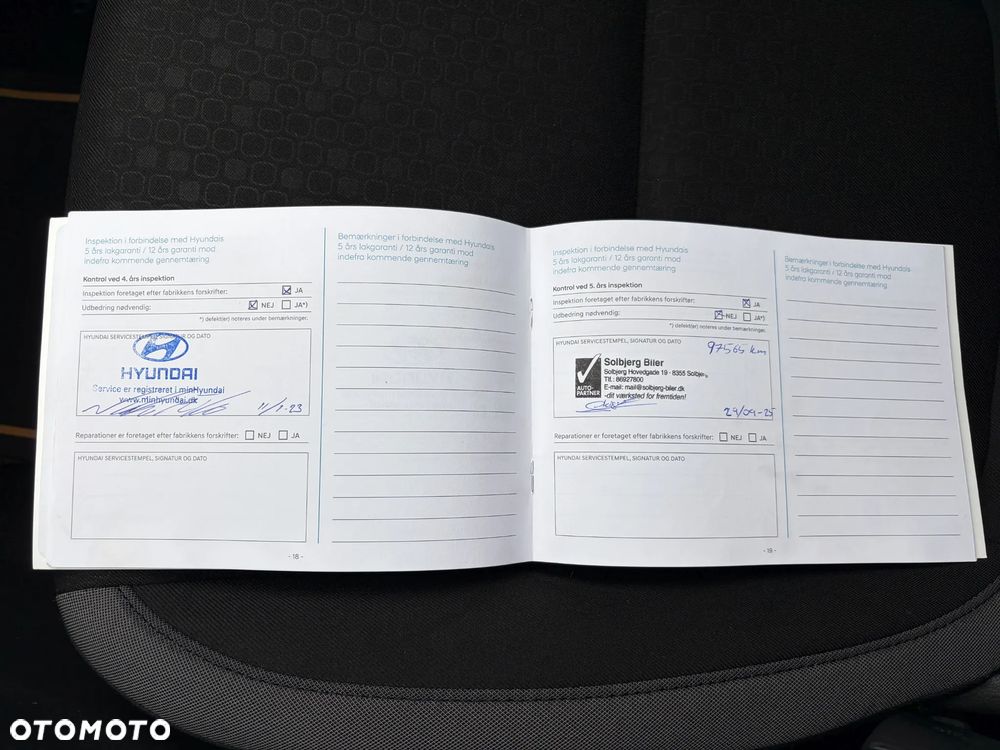 Inspektion i forbindelse med Hyundais
5 års lakgaranti / 12 års garanti mod
indefra kommende gennemtæring
Kontrol ved 4. års inspektion
Inspektion foretaget efter fabrikkens forskrifter: JA
Udbedring nødvendig: NEJ JA*)
*) defekt(er) noteres under bemærkninger.
HYUNDAI SERVICESTEMPEL, SIGNATUR OG DATO
HYUNDAI
Service er registreret i minHyundai
www.minhyundai.dk
11/1-23
Reparationer er foretaget efter fabrikkens forskrifter: NEJ JA
HYUNDAI SERVICESTEMPEL, SIGNATUR OG DATO
- 18 -
Bemærkninger i forbindelse med Hyundais
5 års lakgaranti / 12 års garanti mod
indefra kommende gennemtæring
Inspektion i forbindelse med Hyundais
5 års lakgaranti / 12 års garanti mod
indefra kommende gennemtæring
Kontrol ved 5. års inspektion
Inspektion foretaget efter fabrikkens forskrifter: JA
Udbedring nødvendig: NEJ JA*)
*) defekt(er) noteres under bemærkninger.
HYUNDAI SERVICESTEMPEL, SIGNATUR OG DATO
97565 km
AUTO-
PARTNER
Solbjerg Biler
Solbjerg Hovedgade 19 · 8355 Solbjerg
Tlf.: 86927800
E-mail: mail@solbjerg-biler.dk
-dit værksted for fremtiden!
29/09-25
Reparationer er foretaget efter fabrikkens forskrifter: NEJ JA
HYUNDAI SERVICESTEMPEL, SIGNATUR OG DATO
- 19 -
Bemærkninger i forbindelse med Hyundais
5 års lakgaranti / 12 års garanti mod
indefra kommende gennemtæring
OTOMOTO